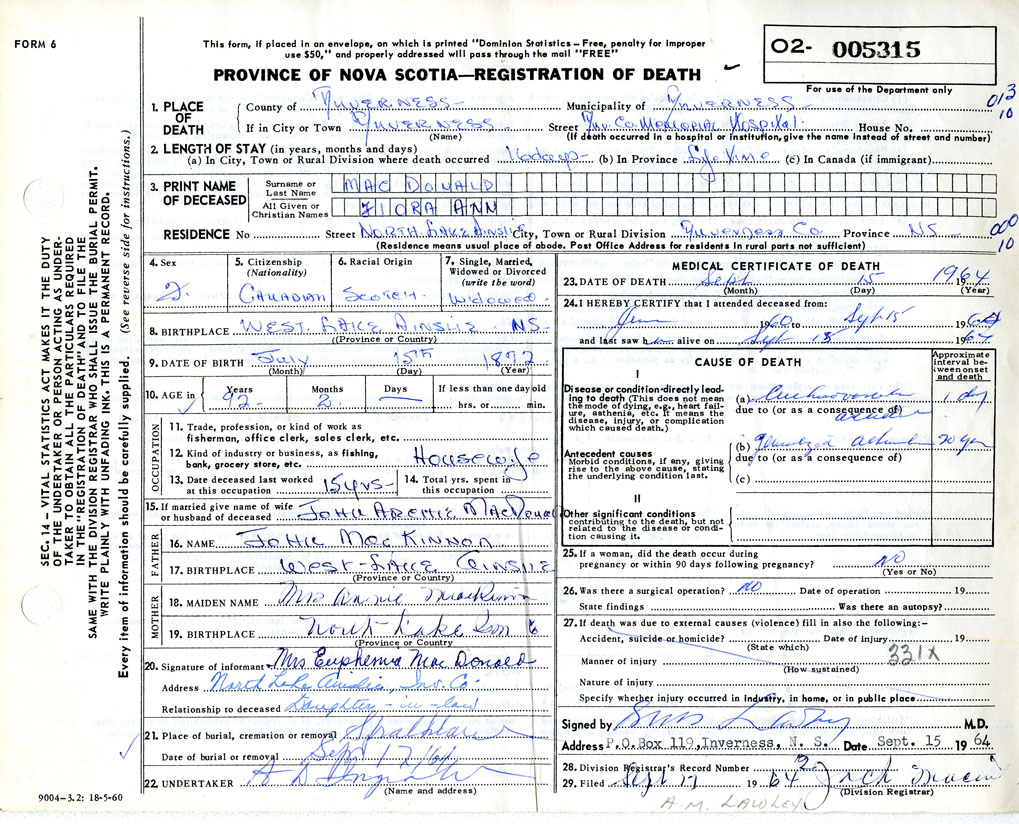 FORM 6
This form, if placed in an envelope, on which is printed "Dominion Statistics – Free, penalty for improper
use $50," and properly addressed will pass through the mail "FREE"
O2- 005315
PROVINCE OF NOVA SCOTIA—REGISTRATION OF DEATH
For use of the Department only
013
10
1. PLACE OF DEATH
County of Inverness Municipality of Inverness
If in City or Town Inverness Street Inv. Co. Memorial Hospital House No.
(Name) (If death occurred in a hospital or Institution, give the name Instead of street and number)
2. LENGTH OF STAY (in years, months and days)
(a) In City, Town or Rural Division where death occurred 16 days (b) In Province Life time (c) In Canada (if immigrant)
3. PRINT NAME OF DECEASED
Surname or Last Name MAC DONALD
All Given or Christian Names FLORA ANN
RESIDENCE No Street North Lake Ainslie City, Town or Rural Division Inverness Co. Province NS
000
10
(Residence means usual place of abode. Post Office Address for residents in rural parts not sufficient)
4. Sex F.
5. Citizenship (Nationality) Canadian
6. Racial Origin Scotch
7. Single, Married, Widowed or Divorced (write the word) Widowed
8. BIRTHPLACE West Lake Ainslie NS
(Province or Country)
9. DATE OF BIRTH July 15th 1872
(Month) (Day) (Year)
10. AGE in Years 92 Months 2 Days — If less than one day old hrs. or min.
OCCUPATION
11. Trade, profession, or kind of work as
fisherman, office clerk, sales clerk, etc.
12. Kind of industry or business, as fishing,
bank, grocery store, etc. Housewife
13. Date deceased last worked at this occupation 15 yrs
14. Total yrs. spent in this occupation
15. If married give name of wife
or husband of deceased John Archie MacDonald
FATHER
16. NAME John MacKinnon
17. BIRTHPLACE West-Lake Ainslie
(Province or Country)
MOTHER
18. MAIDEN NAME Mrs Annie MacKinnon
19. BIRTHPLACE North Lake
(Province or Country)
20. Signature of informant Mrs Euphemia MacDonald
Address North Lake Ainslie, Inv. Co.
Relationship to deceased Daughter-in-law
21. Place of burial, cremation or removal Strathlorne
Date of burial or removal Sept 17 64
22. UNDERTAKER
(Name and address)
9004–3.2: 18-5-60
MEDICAL CERTIFICATE OF DEATH
23. DATE OF DEATH Sept 15 1964
(Month) (Day) (Year)
24. I HEREBY CERTIFY that I attended deceased from:
1960 to Sept 15 1964
and last saw h alive on Sept 15 1964
CAUSE OF DEATH
Approximate interval between onset and death
I
Disease or condition directly leading to death (This does not mean
the mode of dying, e.g., heart failure, asthenia, etc. It means the
disease, injury, or complication
which caused death.)
(a) Cerebrovascular accident 1 day
due to (or as a consequence of)
Antecedent causes
Morbid conditions, if any, giving
rise to the above cause, stating
the underlying condition last.
(b) 20 yrs
due to (or as a consequence of)
(c)
II
Other significant conditions
contributing to the death, but not
related to the disease or condition causing it.
25. If a woman, did the death occur during
pregnancy or within 90 days following pregnancy? NO
(Yes or No)
26. Was there a surgical operation? NO Date of operation 19
State findings Was there an autopsy?
27. If death was due to external causes (violence) fill in also the following:-
Accident, suicide or homicide? Date of injury 19
(State which)
331X
Manner of injury
(How sustained)
Nature of injury
Specify whether injury occurred in Industry, in home, or in public place
Signed by M.D.
Address P.O. Box 119, Inverness, N. S. Date Sept. 15 1964
28. Division Registrar's Record Number
29. Filed Sept 17 1964
(Division Registrar)
A M. LAWLEY
SEC. 14 – VITAL STATISTICS ACT MAKES IT THE DUTY
OF THE UNDERTAKER OR PERSON ACTING AS UNDERTAKER TO OBTAIN ALL THE PARTICULARS REQUIRED
IN THE "REGISTRATION OF DEATH" AND TO FILE THE
SAME WITH THE DIVISION REGISTRAR WHO SHALL ISSUE THE BURIAL PERMIT.
WRITE PLAINLY WITH UNFADING INK. THIS IS A PERMANENT RECORD.
Every item of information should be carefully supplied. (See reverse side for instructions.)